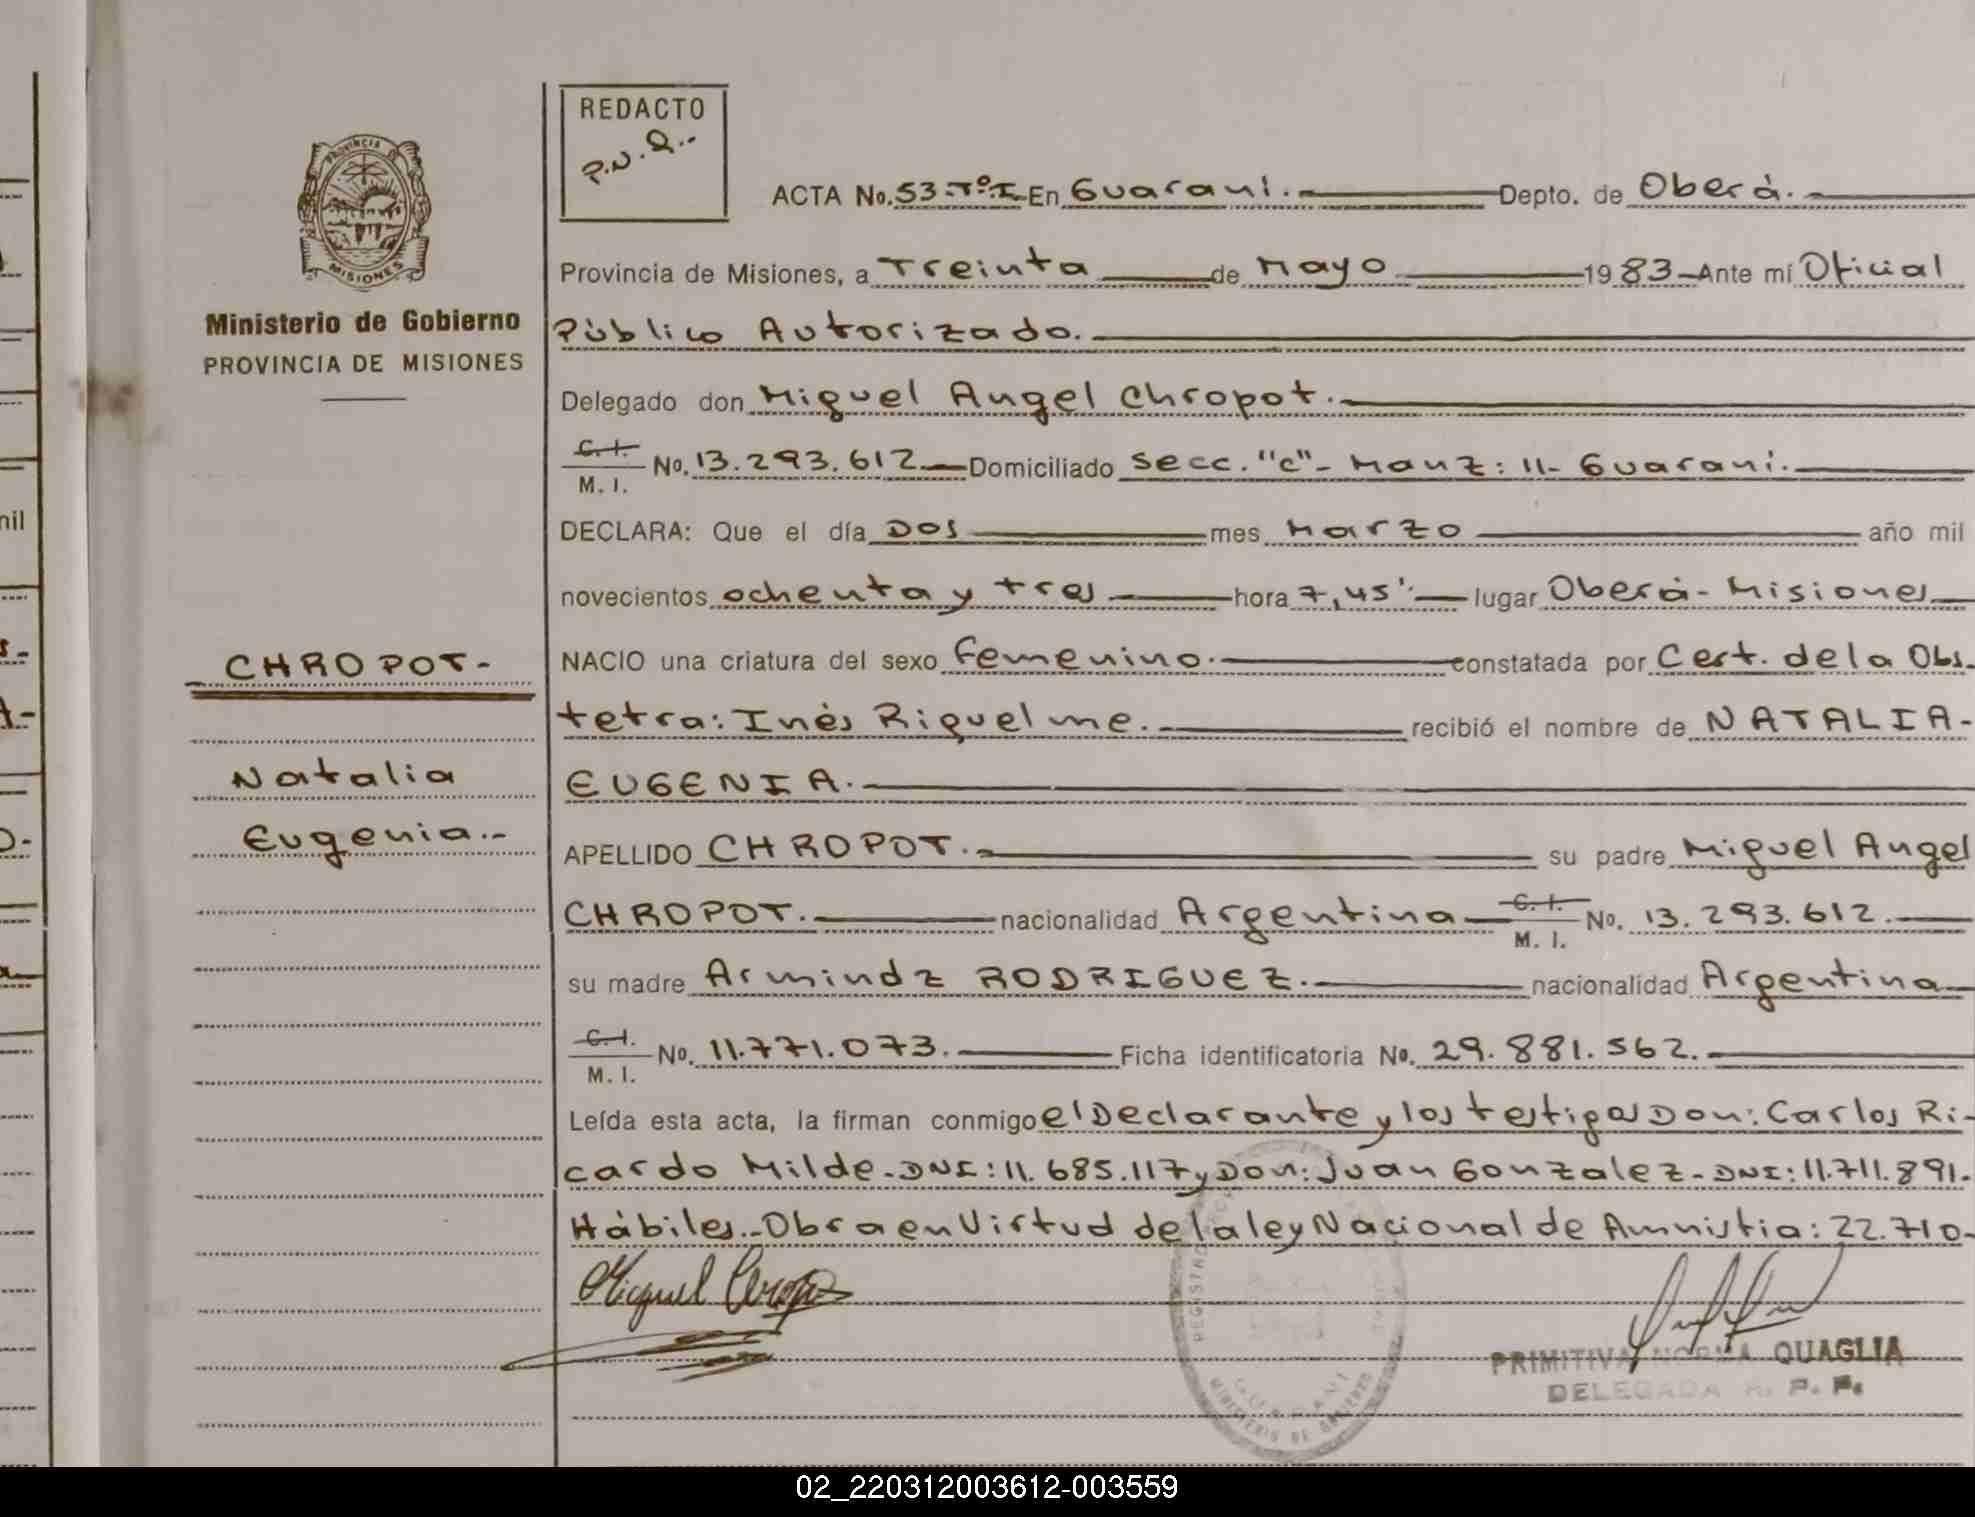 REDACTO
P.N.Q.-
PROVINCIA
MISIONES
Ministerio de Gobierno
PROVINCIA DE MISIONES
CHROPOT-
Natalia
Eugenia.-
ACTA No. 53-TºI- En Guaraní.- Depto. de Oberá.-
Provincia de Misiones, a Treinta de Mayo 19 83 Ante mí Oficial
Público Autorizado.
Delegado don Miguel Angel Chropot.-
C. I. M. I. No. 13.293.612.- Domiciliado Secc. "C"- Manz: 11- Guaraní.
DECLARA: Que el día Dos mes Marzo año mil
novecientos ochenta y tres hora 7,45' lugar Oberá- Misiones
NACIO una criatura del sexo femenino. constatada por Cert. de la Obs-
tetra: Inés Riquelme. recibió el nombre de NATALIA-
EUGENIA.
APELLIDO CHROPOT.- su padre Miguel Angel
CHROPOT. nacionalidad Argentina C. I. M. I. No. 13.293.612.
su madre Arminda RODRIGUEZ. nacionalidad Argentina
C. I. M. I. No. 11.771.073. Ficha identificatoria No. 29.881.562.
Leída esta acta, la firman conmigo el Declarante y los testigos Don: Carlos Ri-
cardo Milde-DNI: 11.685.117 y Don: Juan Gonzalez-DNI: 11.711.891.
Hábiles.-Obra en Virtud de la ley Nacional de Amnistia: 22.710-
Miguel Chropot
PRIMITIVA NORMA QUAGLIA
DELEGADA R. P. P.
MINISTERIO DE GOBIERNO
02_220312003612-003559